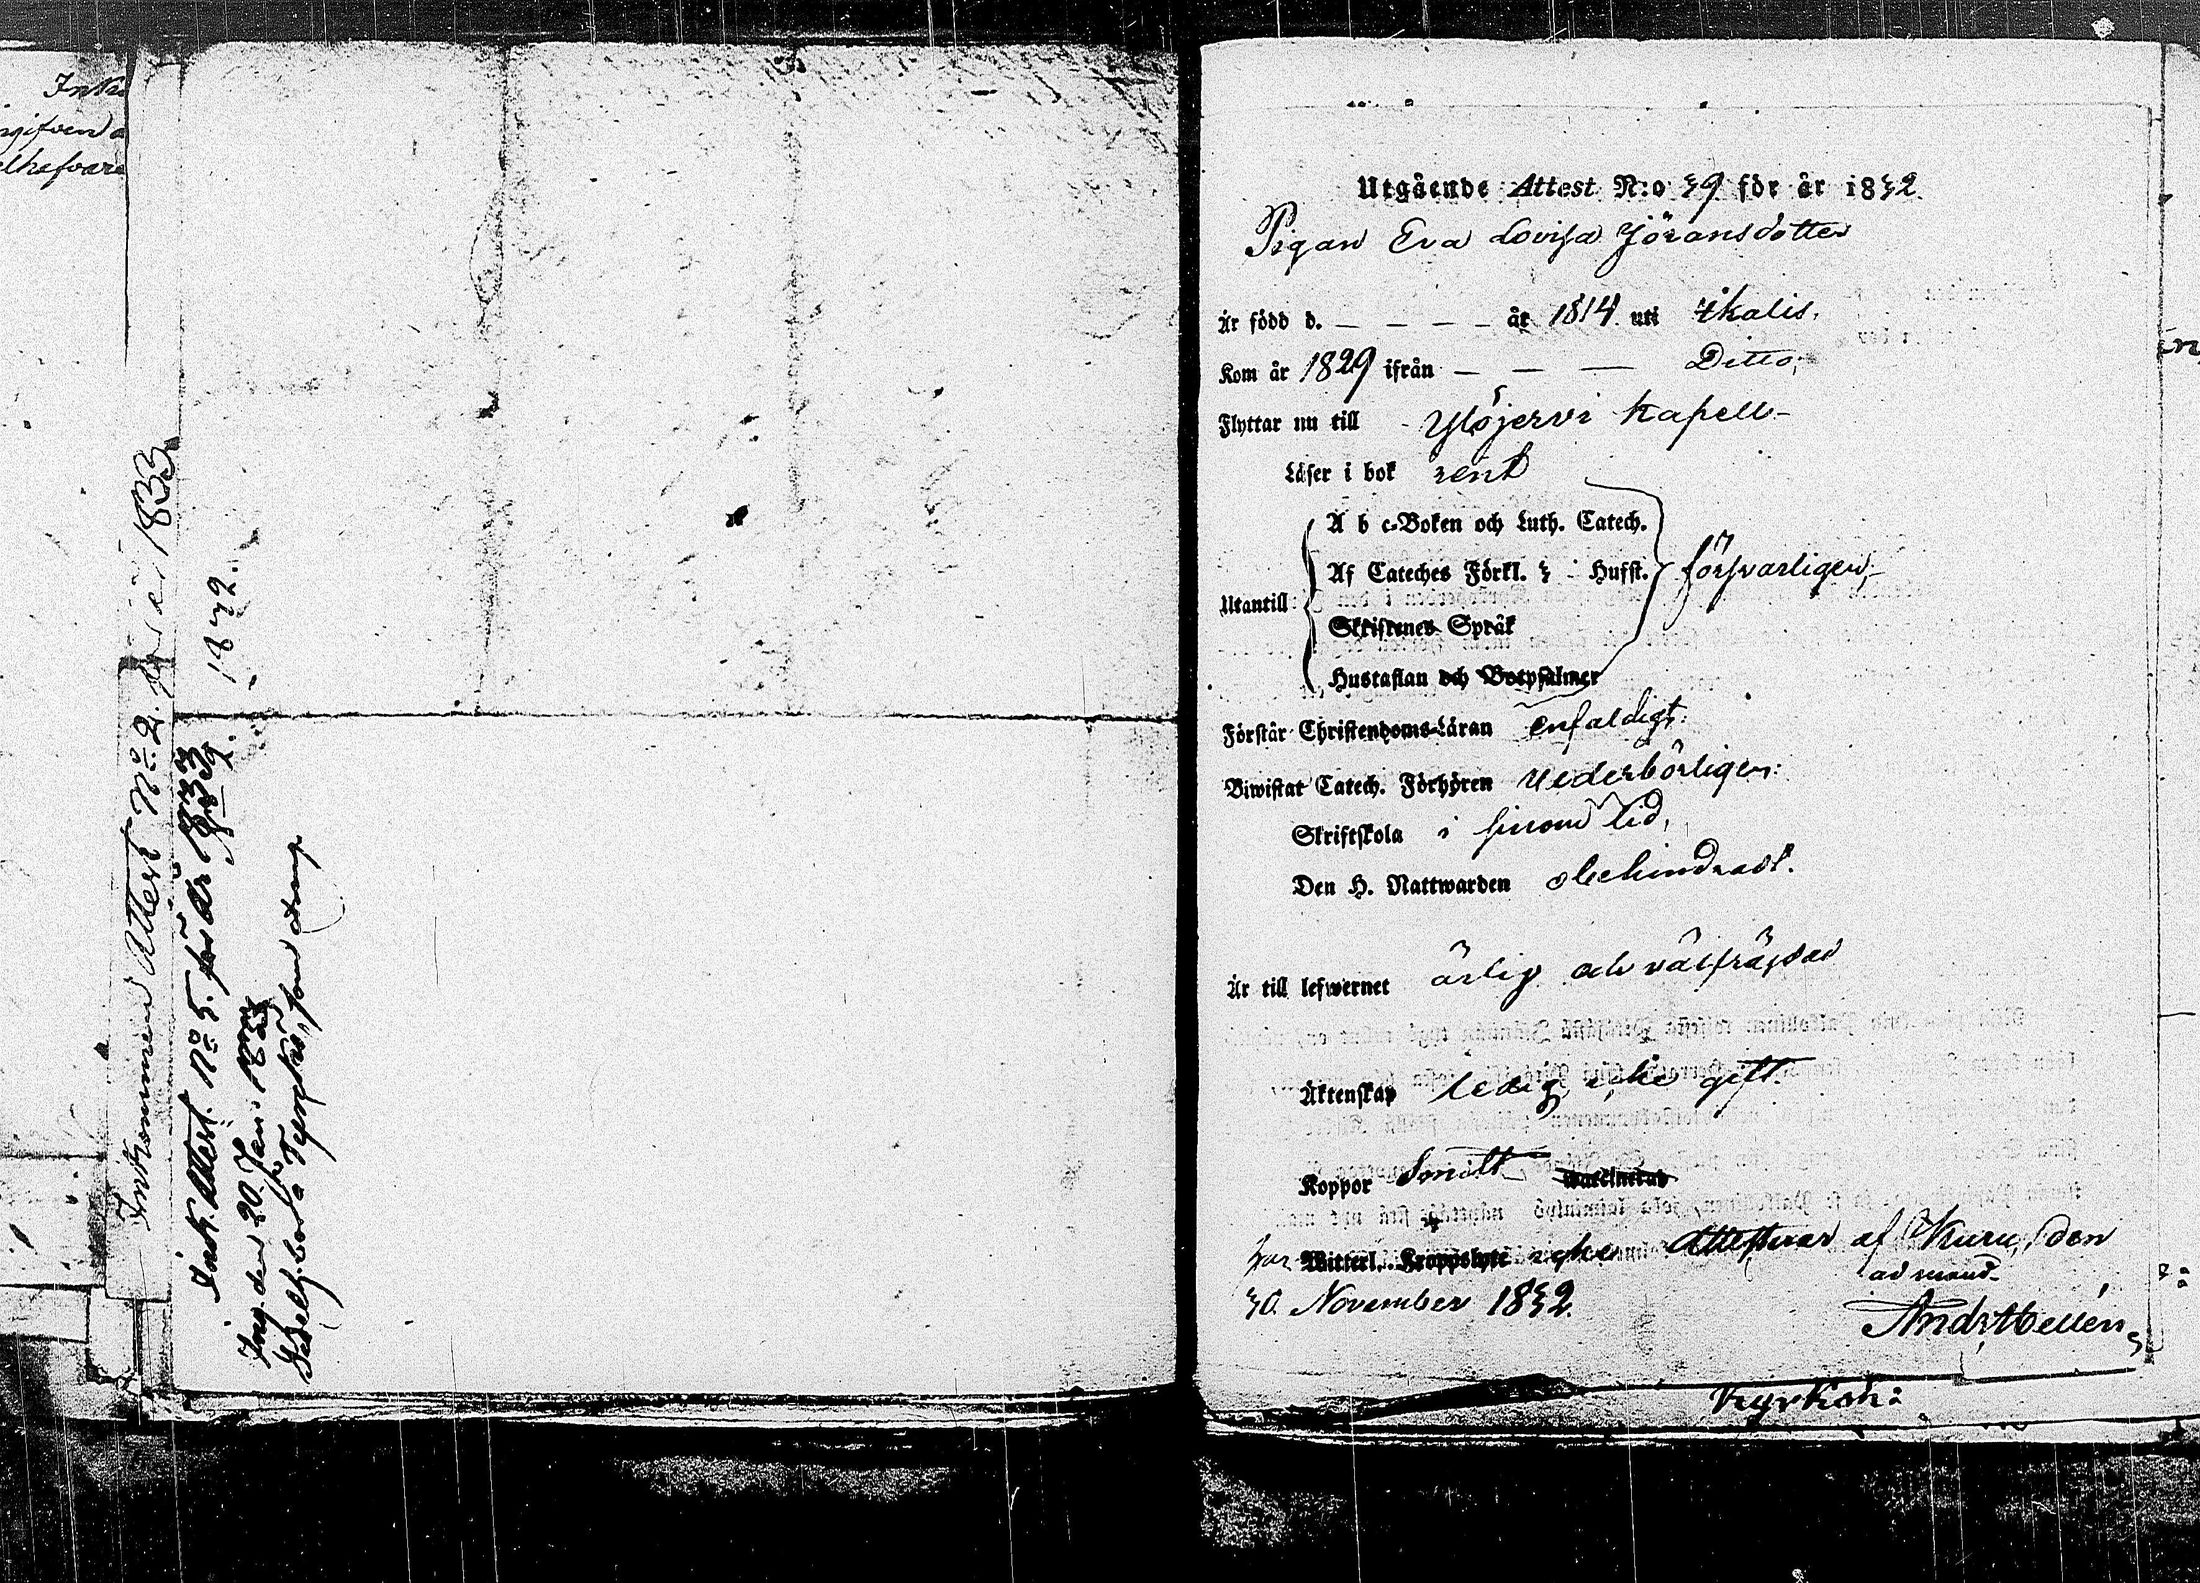 Inko
elkefvare
Inkommen Attest No 2. för år 1833
Inök. Attest. No 5. för år 1833
Ing. den 20 Jan: 1833
1832.
Utgående Attest N:o 39 för år 1832.
Pigan Eva Lovisa Jöransdotter
Är född d. — — — — år 1814 uti Ikalis.
Kom år 1829 ifrån — — — Ditto,
Flyttar nu till Ylöjervi Kapell
Läser i bok rent
A b c-Boken och Luth. Catech.
Af Cateches Förkl. 3 Husst. försvarligen,
Utantill:
Skriftenes Språk
Hustaflan och Botpsalmer
Förstår Christendoms-Läran enfaldigt.
Biwistat Catech. Förhören vederbörligen:
Skriftskola i sinom tid,
Den H. Nattwarden obehindradt.
Är till lefwernet ärlig och välfräjdad
Äktenskap ledig, icke gift.
Koppor Smitt Vaccinerad
har Witterl. Kroppslyte icke. Attesterar af Kuru, den
30. November 1832.
ad mand.
And: Hellén
Kyrkoh: